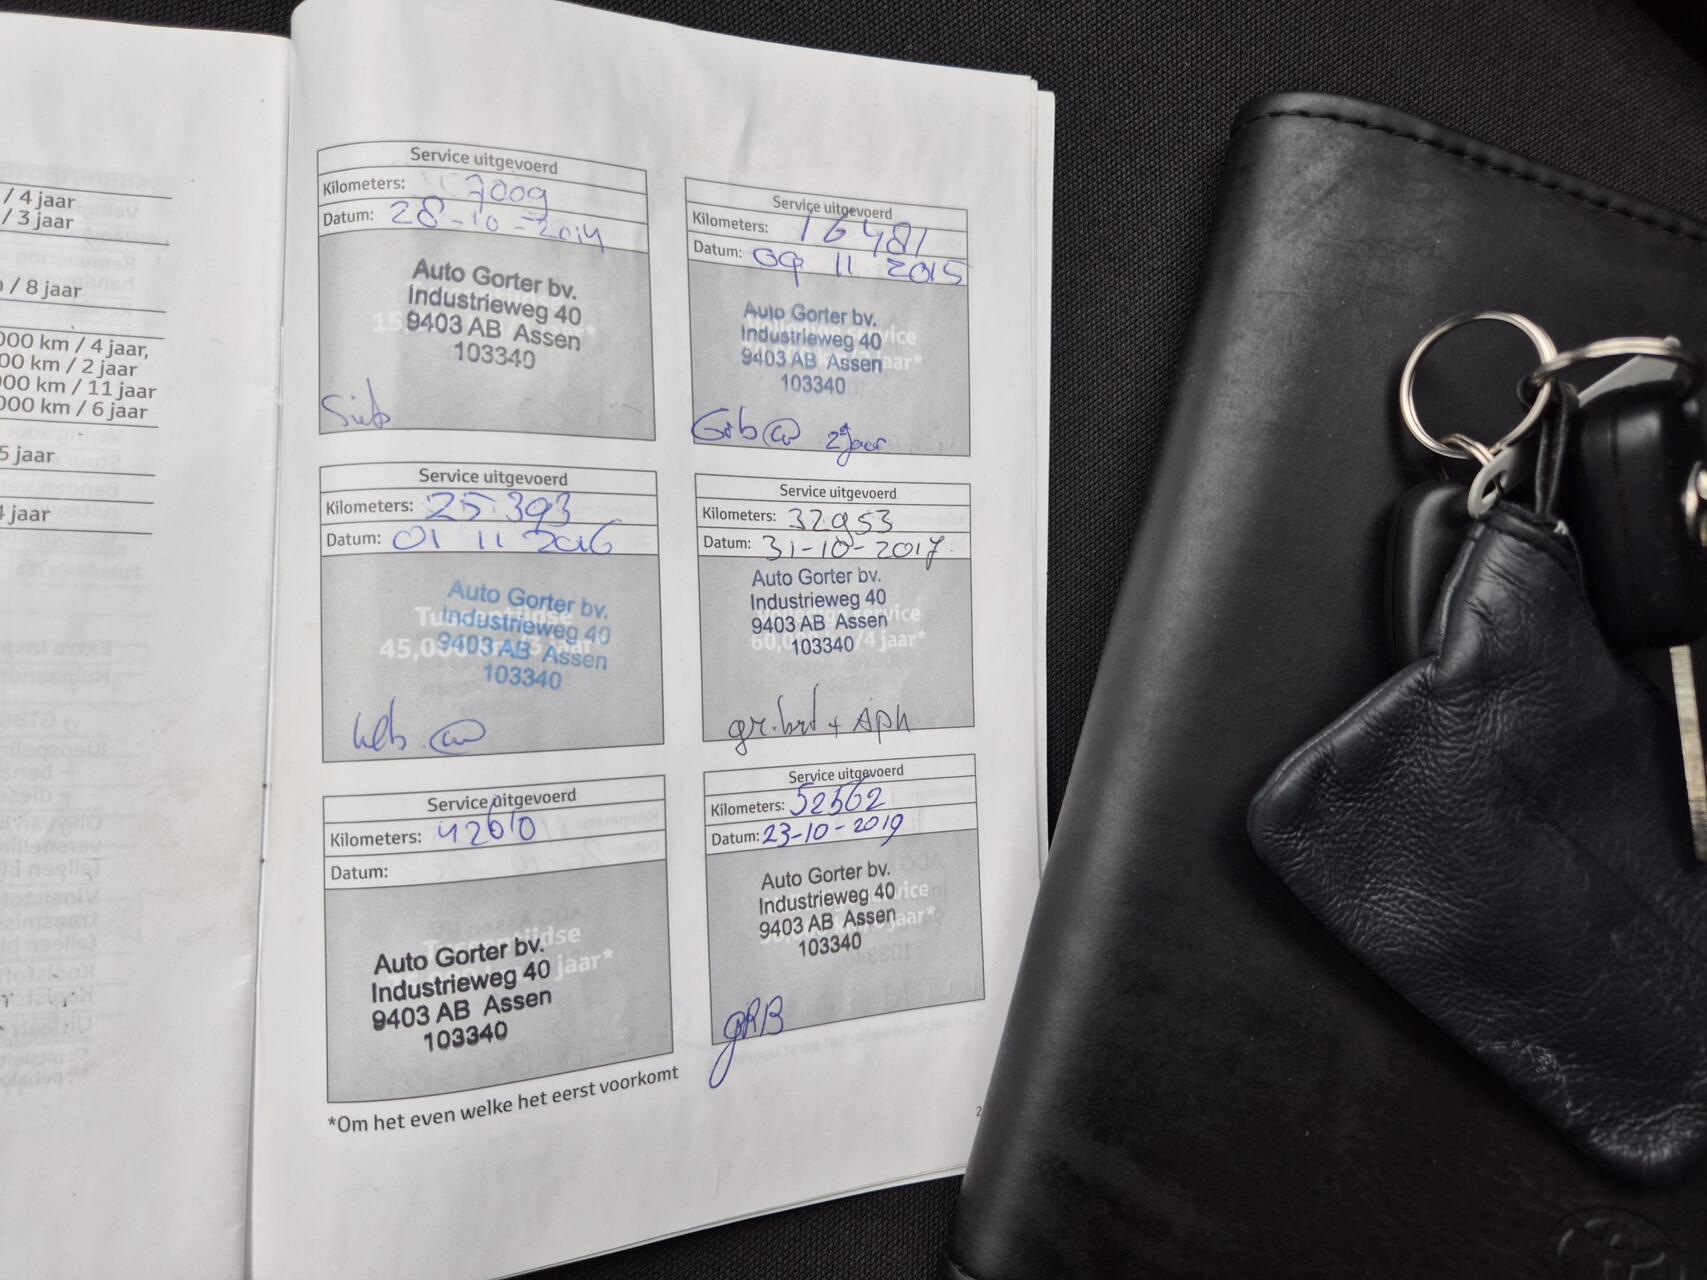 / 4 jaar
/ 3 jaar
/ 8 jaar
000 km / 4 jaar,
00 km / 2 jaar
000 km / 11 jaar
000 km / 6 jaar
5 jaar
4 jaar
Service uitgevoerd
Kilometers: 7009
Datum: 28-10-2014
Auto Gorter bv.
Industrieweg 40
9403 AB Assen
103340
Service uitgevoerd
Kilometers: 16481
Datum: 09 11 2015
Auto Gorter bv.
Industrieweg 40
9403 AB Assen
103340
2e jaar
Service uitgevoerd
Kilometers: 25.393
Datum: 01 11 2016
Auto Gorter bv.
Tussentijdse
Industrieweg 40
45,000
9403 AB Assen
103340
Service uitgevoerd
Kilometers: 32953
Datum: 31-10-2017
Auto Gorter bv.
Industrieweg 40
Volledige service
9403 AB Assen
60,000 /4 jaar*
103340
gr.brt + Aph.
Service uitgevoerd
Kilometers: 42610
Datum:
Auto Gorter bv.
Tussentijdse
Industrieweg 40
jaar*
9403 AB Assen
103340
Service uitgevoerd
Kilometers: 52562
Datum: 23-10-2019
Auto Gorter bv.
Industrieweg 40
9403 AB Assen
jaar*
103340
gRB
*Om het even welke het eerst voorkomt
2